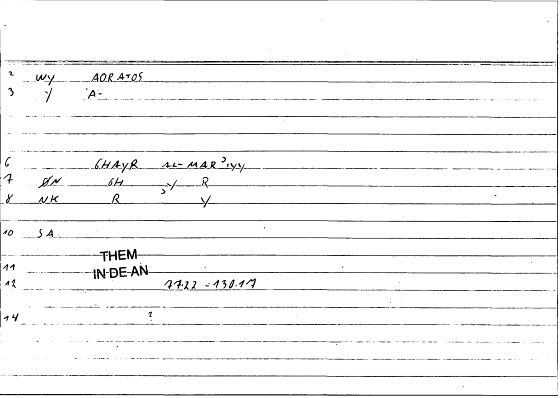 2 WY AORATOS
3 Y A-
6 GHAYR AL-MAR³IYY
7 ØN GH ³Y R
8 NK R Y
10 SA
11 THEM
IN-DE-AN
12 77.22 = 130.17
14 ?